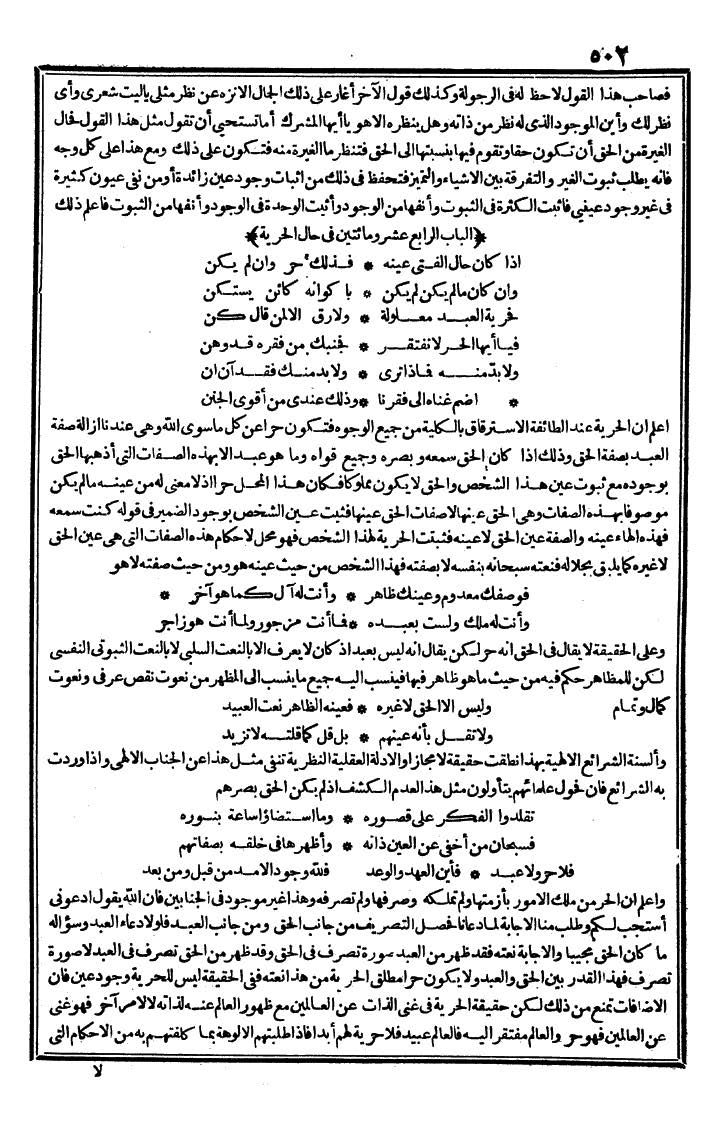 ٥٠٢
فصاحب هذا القول لاحظ له فى الرجولة وكذلك قول الآخر أغار على ذلك الجمال الانزه عن نظر مثلى ياليت شعرى وأى
نظر لك وأين الموجود الذى له نظر من ذاته وهل ينظره الا هو يا أيها المشرك أما تستحيى أن تقول مثل هذا القول فحال
الغيرة من الحق أن تكون حقا وتقوم فيها بنسبتها الى الحق فتنظر ما الغيرة منه فتكون على ذلك ومع هذا على كل وجه
فانه يطلب ثبوت الغير والتفرقة بين الاشياء والتميز فتحفظ فى ذلك من اثبات وجود عين زائدة أو من نفى عيون كثيرة
فى غير وجود عينى فاثبت الكثرة فى الثبوت وأنفها من الوجود وأثبت الوحدة فى الوجود وأنفها من الثبوت فاعلم ذلك
﴿الباب الرابع عشر ومائتين فى حال الحرية﴾
اذا كان حال الفتى عينه * فذلك حر وان لم يكن
وان كان مالم يكن لم يكن * باكوانه كائن يستكن
فحرية العبد معلولة * ولا رق الا لمن قال كن
فيا أيها الحر لا تفتقر * بجنبك من فقره قد وهن
ولا بد منه فماذا ترى * ولا بد منك فقد آن ان
* اضم غناه الى فقرنا * وذلك عندى من أقوى الجنن
اعلم ان الحرية عند الطائفة الاسترقاق بالكلية من جميع الوجوه فتكون حرا عن كل ما سوى الله وهى عندنا ازالة صفة
العبد بصفة الحق وذلك اذا كان الحق سمعه و بصره وجميع قواه وما هو عبد الا بهذه الصفات التى أذهبها الحق
بوجوده مع ثبوت عين هذا الشخص والحق لا يكون مملوكا فكان هذا المحل حرا اذ لا معنى له من عينه مالم يكن
موصوفا بهذه الصفات وهى الحق عينها لا صفات الحق عينها فثبت عين الشخص بوجود الضمير فى قوله كنت سمعه
فهذه الهاء عينه والصفة عين الحق لا عينه فثبتت الحرية لهذا الشخص فهو محل لاحكام هذه الصفات التى هى عين الحق
لا غيره كما يليق بجلاله فنعته سبحانه بنفسه لا بصفته فهذا الشخص من حيث عينه هو ومن حيث صفته لا هو
فوصفك معدوم وعينك ظاهر * وأنت له آل كما هو آخر *
وأنت له ملك ولست بعبده * فما أنت مزجور ولا أنت هو زاجر
وعلى الحقيقة لا يقال فى الحق انه حر لكن يقال انه ليس بعبد اذ كان لا يعرف الا بالنعت السلبى لا بالنعت الثبوتى النفسى
لكن للمظاهر حكم فيه من حيث ما هو ظاهر فيها فينسب اليه جميع ما ينسب الى المظهر من نعوت نقص عرفى ونعوت
كمال وتمام وليس الا الحق لا غيره * فعينه الظاهر نعت العبيد
ولا تقل بأنه عينهم * بل قل كما قلته لا تزيد
وألسنة الشرائع الالهية بهذا نطقت حقيقة لا مجازا والادلة العقلية النظرية تنفى مثل هذا عن الجناب الالهى واذا وردت
به الشرائع فان فحول علمائهم يتأولون مثل هذا لعدم الكشف اذ لم يكن الحق بصرهم
تقلدوا الفكر على قصوره * وما استضاؤا ساعة بنوره
فسبحان من أخفى عن العين ذاته * وأظهرها فى خلقه بصفاتهم
فلا حر ولا عبد * فأين العهد والوعد فلله وجود الامر من قبل ومن بعد
واعلم ان الحر من ملك الامور بأزمتها ولم تملكه وصرفها ولم تصرفه وهذا غير موجود فى الجنابين فان الله يقول ادعونى
أستجب لكم وطلب منا الاجابة لما دعانا فحصل التصريف من جانب الحق ومن جانب العبد فلولا دعاء العبد وسؤاله
ما كان الحق مجيبا والاجابة نعته فقد ظهر من العبد صورة تصرف فى الحق وقد ظهر من الحق تصرف فى العبد لا صورة
تصرف فهذا القدر بين الحق والعبد ولا يكون حرا مطلق الحرية من هذا نعته ففى الحقيقة ليس للحرية وجود عين فان
الاضافات تمنع من ذلك لكن حقيقة الحرية فى غنى الذات عن العالمين مع ظهور العالم عنه لذاته لا لامر آخر فهو غنى
عن العالمين فهو حر والعالم مفتقر اليه فالعالم عبيد فلا حرية لهم أبدا فاذا طلبتهم الالوهة بما كلفتهم به من الاحكام التى
لا